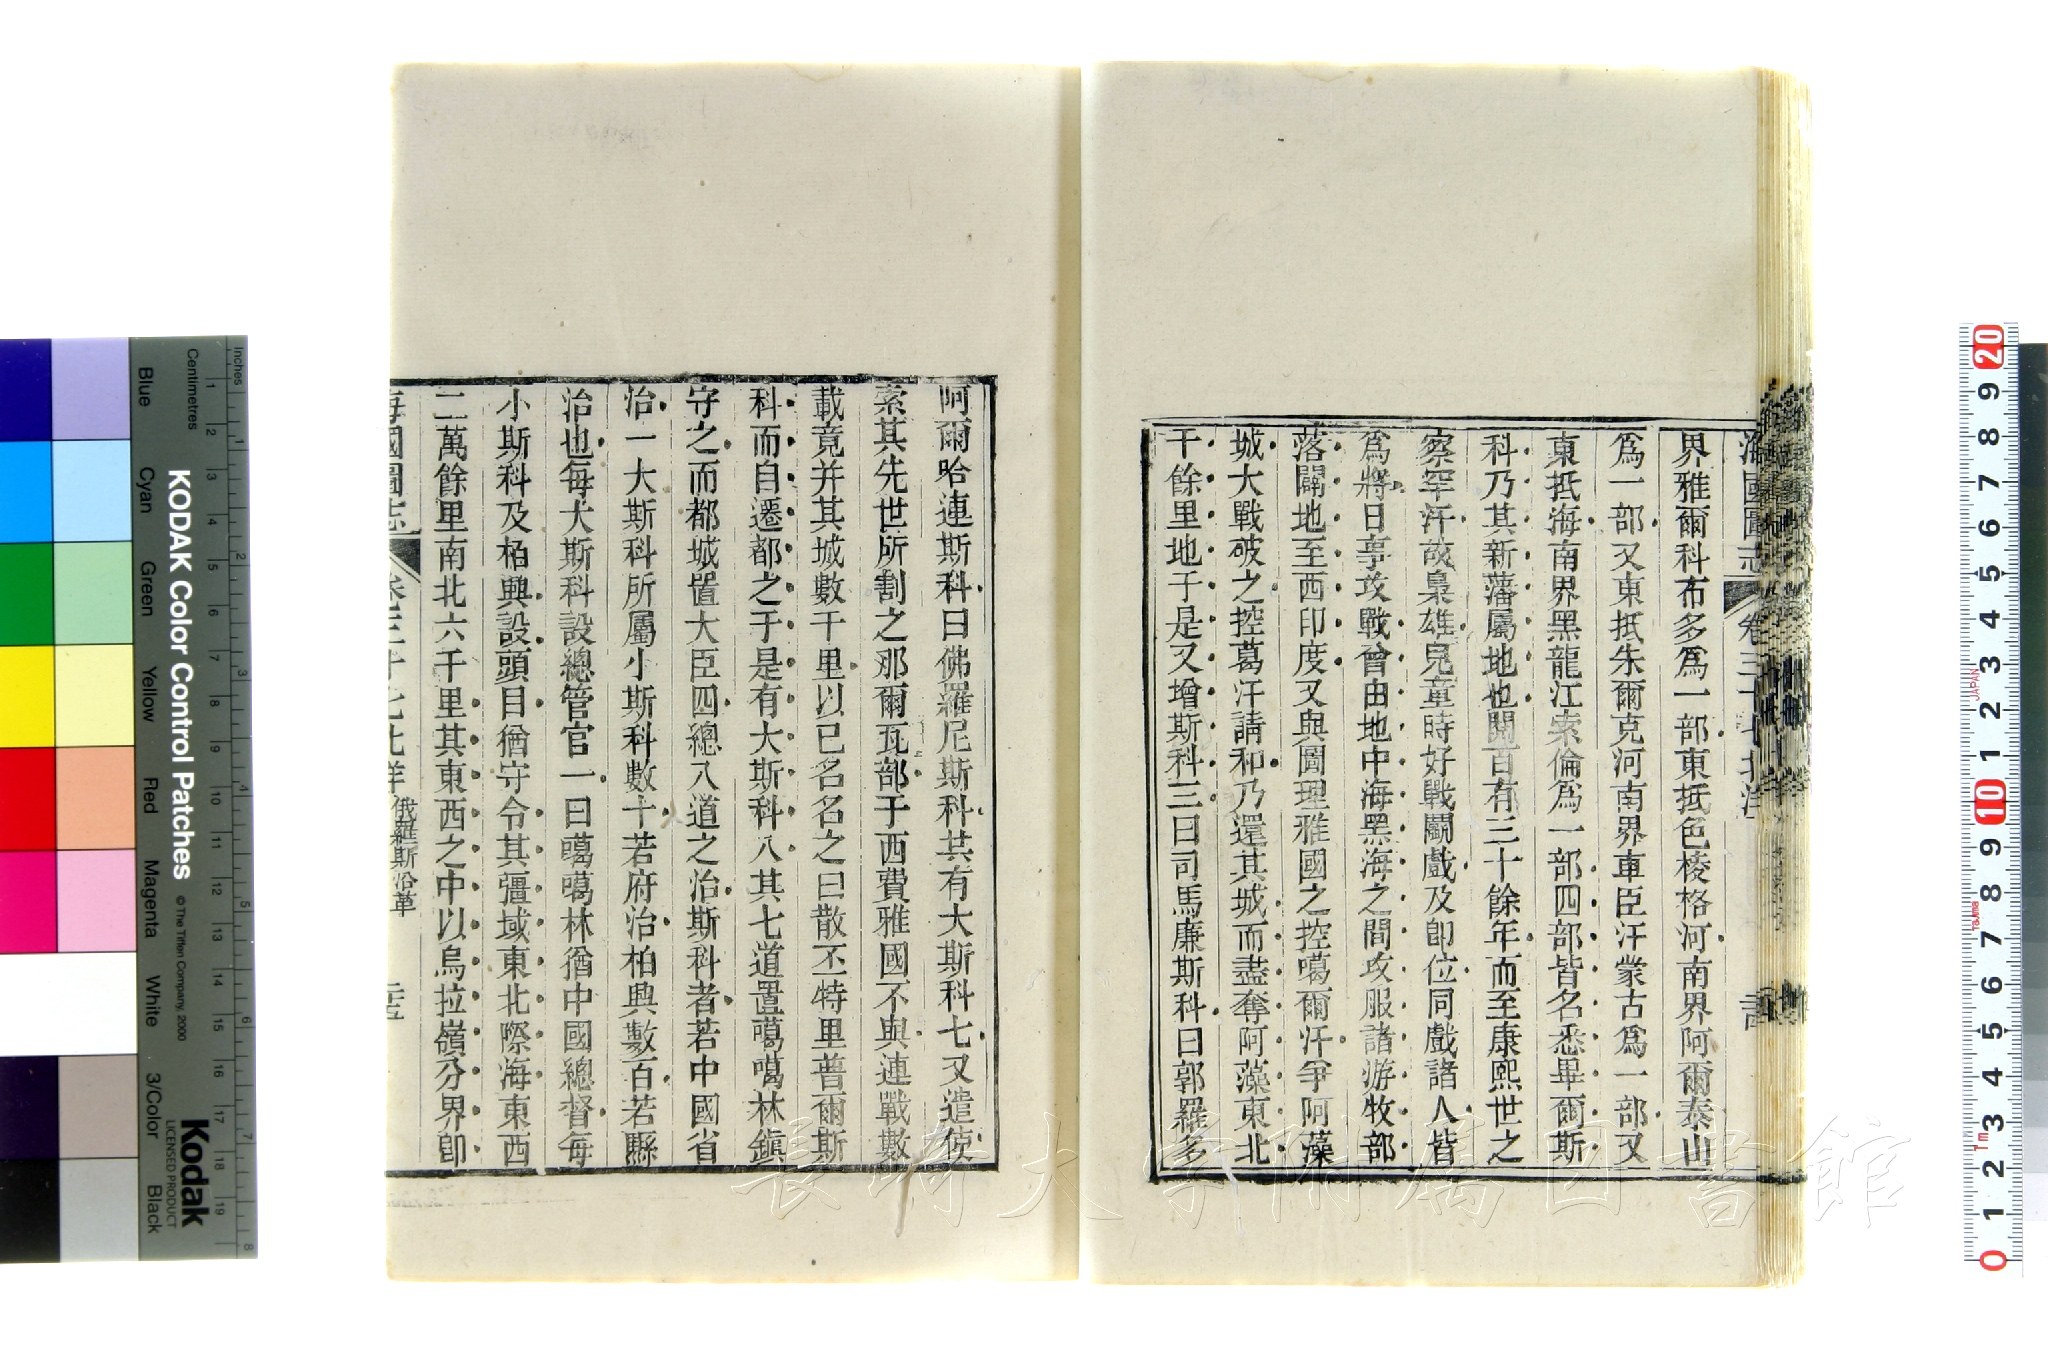 界雅爾科布多爲一部東抵色棱格河南界阿爾泰山
爲一部又東抵朱爾克河南界車臣汗蒙古爲一部又
東抵海南界黑龍江索倫爲一部四部皆名悉畢爾斯
科乃其新藩屬地也閱百有三十餘年而至康熙世之
察罕汗故梟雄兒童時好戰鬭戲及卽位同戲諸人皆
爲將日事攻戰曾由地中海黑海之間攻服諸游牧部
落闢地至西印度又與圖理雅國之控噶爾汗爭阿藻
城大戰破之控葛汗請和乃還其城而盡奪阿藻東北
千餘里地于是又增斯科三曰司馬廉斯科曰郭羅多
阿爾哈連斯科曰佛羅尼斯科共有大斯科七又遣使
索其先世所割之那爾瓦部于西費雅國不與連戰數
載竟并其城數千里以己名名之曰散丕特里普爾斯
科而自遷都之于是有大斯科八其七道置噶噶林鎭
守之而都城置大臣四總八道之治斯科者若中國省
治一大斯科所屬小斯科數十若府治柏興數百若縣
治也每大斯科設總管官一曰噶噶林猶中國總督每
小斯科及柏興設頭目猶守令其彊域東北際海東西
二萬餘里南北六千里其東西之中以烏拉嶺分界卽
海國圖志 卷三十七北洋 俄羅斯沿革 二五
KODAK Color Control Patches
© The Tiffen Company, 2000
Kodak
LICENSED PRODUCT
Inches
Centimetres
Blue
Cyan
Green
Yellow
Red
Magenta
White
3/Color
Black
JAPAN
長崎大学附属図書館